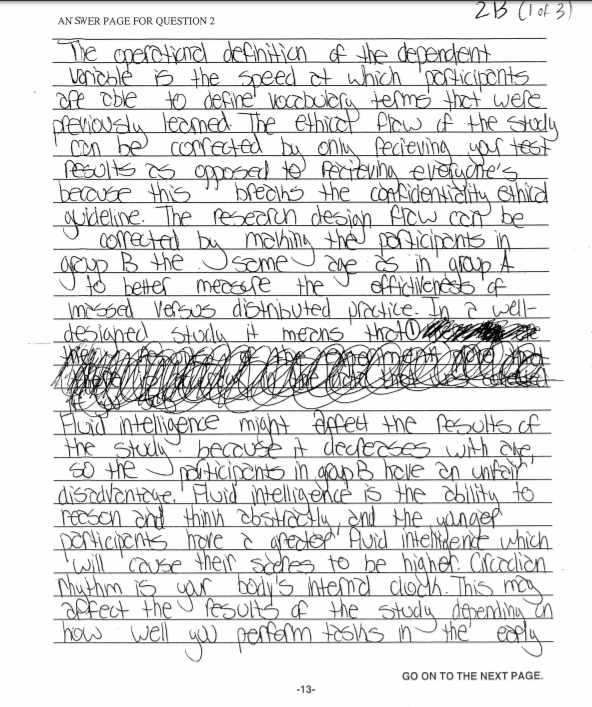 2B (1 of 3)
ANSWER PAGE FOR QUESTION 2
The operational definition of the dependent
variable is the speed at which participants
are able to define vocabulary terms that were
previously learned. The ethical flaw of the study
can be corrected by only recieving your test
results as opposed to recieving everyone's
because this breachs the confidentiality ethical
guideline. The research design flaw can be
corrected by making the participants in
group B the same age as in group A
to better measure the effictiveness of
massed versus distributed practice. In a well-
designed study it means that ①
Fluid intelligence might affect the results of
the study because it decreases with age,
so the participants in group B have an unfair
disadvantage. Fluid intelligence is the ability to
reason and think abstractly, and the yonger
participants have a greater fluid intelligence which
will cause their scores to be higher. Circadian
rhythm is your body's internal clock. This may
affect the results of the study depending on
how well you perform tasks in the early
GO ON TO THE NEXT PAGE.
-13-